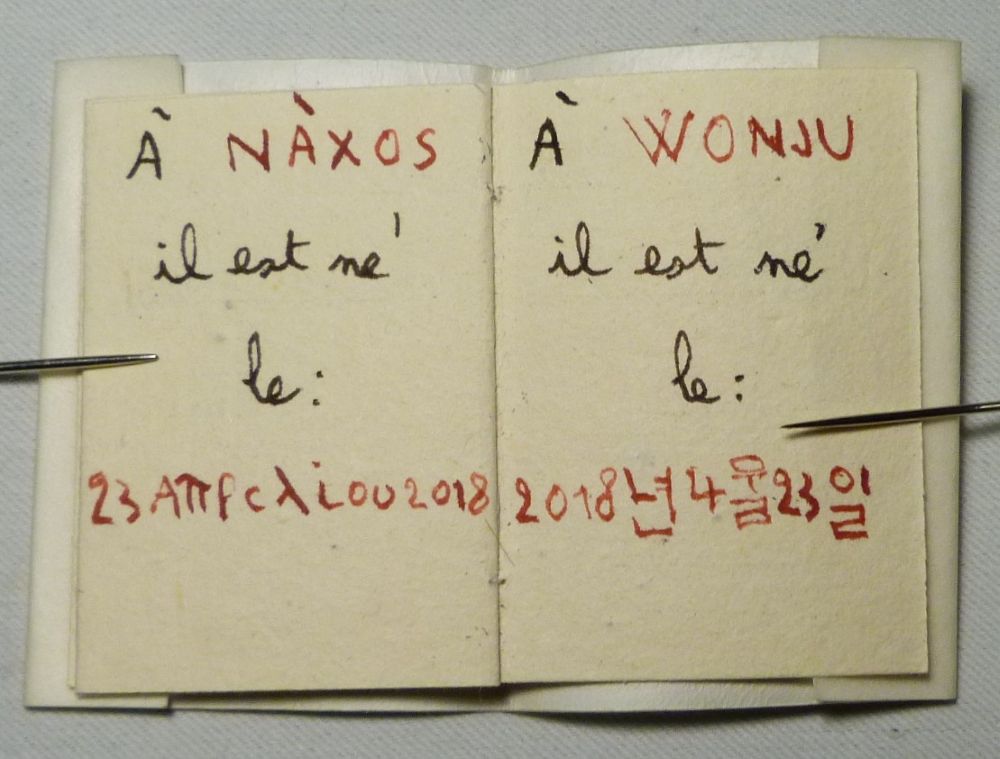 À NÀXOS
il est né
le :
23 Απριλίου 2018
À WONJU
il est né
le :
2018년 4월 23일